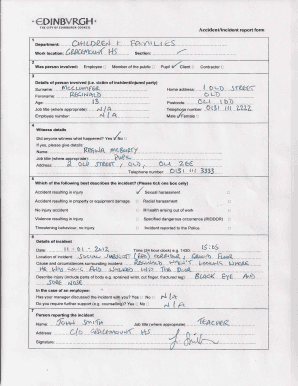 EDINBURGH
THE CITY OF EDINBURGH COUNCIL
Accident/Incident report form
1
Department: CHILDREN & FAMILIES
Work location: GRACEMOUNT HS Section:
2
Was person involved: Employee Member of the public Pupil ✓ Client Contractor
3
Details of person involved (i.e. victim of incident/injured party)
Surname McCLUMFER Home address: 1 OLD STREET
Forename REGINALD OLD
Age 13 Postcode OL1 1DD
Job title (where appropriate) N/A Telephone number 0131 111 2222
Employee number N/A Male ✓ Female
4
Witness details
Did anyone witness what happened? Yes ✓ No
If yes, please give details:
Name REGINA McBURTY
Job title (where appropriate) PUPIL
Address: 2 OLD STREET, OLD, OL1 2EE
Telephone number 0131 111 3333
5
Which of the following best describes the incident? (Please tick one box only)
Accident resulting in injury ✓ Sexual harassment
Accident resulting in property or equipment damage Racial harassment
No injury accident Ill health arising out of work
Violence resulting in injury Specified dangerous occurrence (RIDDOR)
Threatening behaviour, no injury Incident reported to the Police
6
Details of incident
Date 11-01-2012 Time (24 hour clock) e.g. 1430 15:05
Location of incident SOCIAL SUBJECT (RED) CORRIDOR, GROUND FLOOR
Cause and circumstances surrounding incident REGINALD WASN'T LOOKING WHERE
HE WAS GOING AND WALKED INTO THE DOOR
Describe injury (include parts of body e.g. sprained wrist, cut finger, fractured leg) BLACK EYE AND
SORE NOSE
In the case of an employee:
Has your manager discussed the incident with you? Yes No N/A
Do you require further support (e.g. counselling)? Yes No N/A
7
Person reporting the incident
Name JOHN SMITH Job title (where appropriate) TEACHER
Address C/O GRACEMOUNT HS
Signature J. Smith